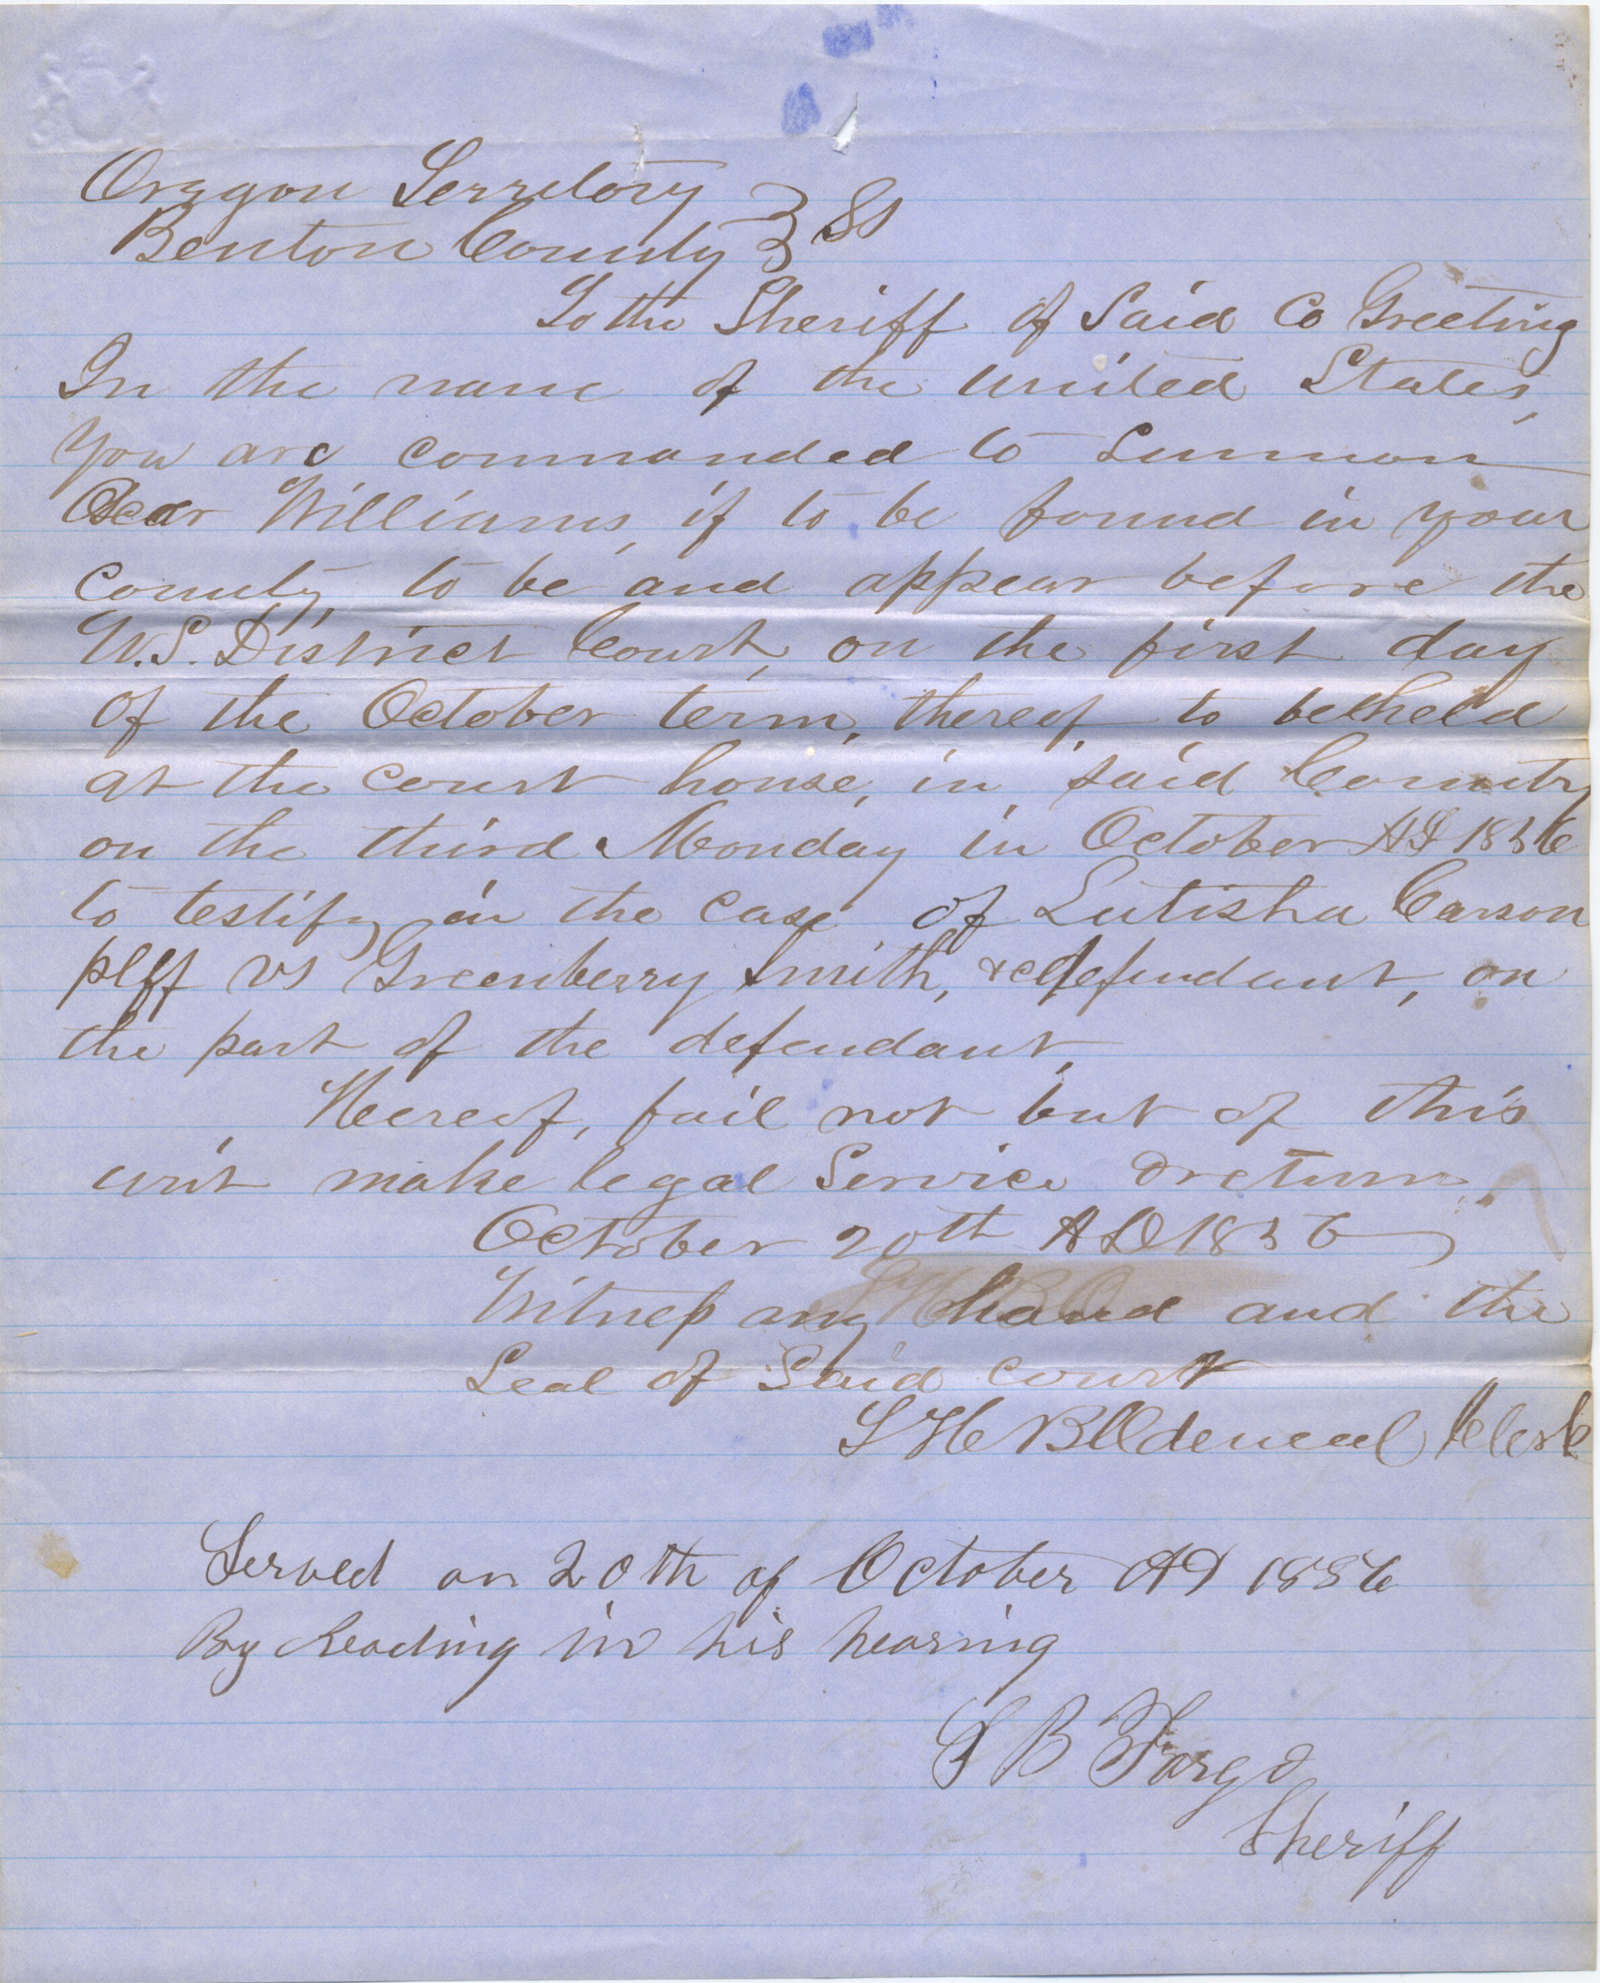 Oregon Territory } SS
Benton County }
To the Sheriff of Said Co Greeting
In the name of the United States,
You are commanded to Summon
Williams, if to be found in your
county, to be and appear before the
U.S. District Court, on the first day
of the October term, thereof, to be held
at the court house, in, said County
on the third Monday in October AD 1856
to testify in the case of Lutisha Carson
plff vs Greenberry Smith, &c defendant, on
the part of the defendant,
Hereof, fail not but of this
writ make legal Service & return.
October 20th AD 1856
Witness my hand and the
Seal of Said Court
Clerk
Served on 20th of October AD 1856
By Reading in his hearing
S B Fargo
Sheriff